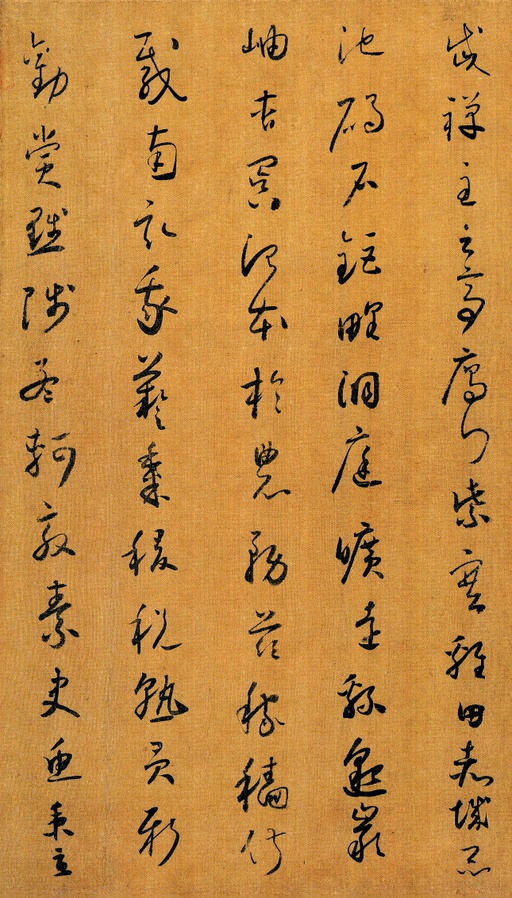 岱禪主云亭雁門紫塞雞田赤城昆
池碣石鉅野洞庭曠遠緜邈巖
岫杳冥治本於農務茲稼穡俶
載南畝我藝黍稷稅熟貢新
勸賞黜陟孟軻敦素史魚秉直